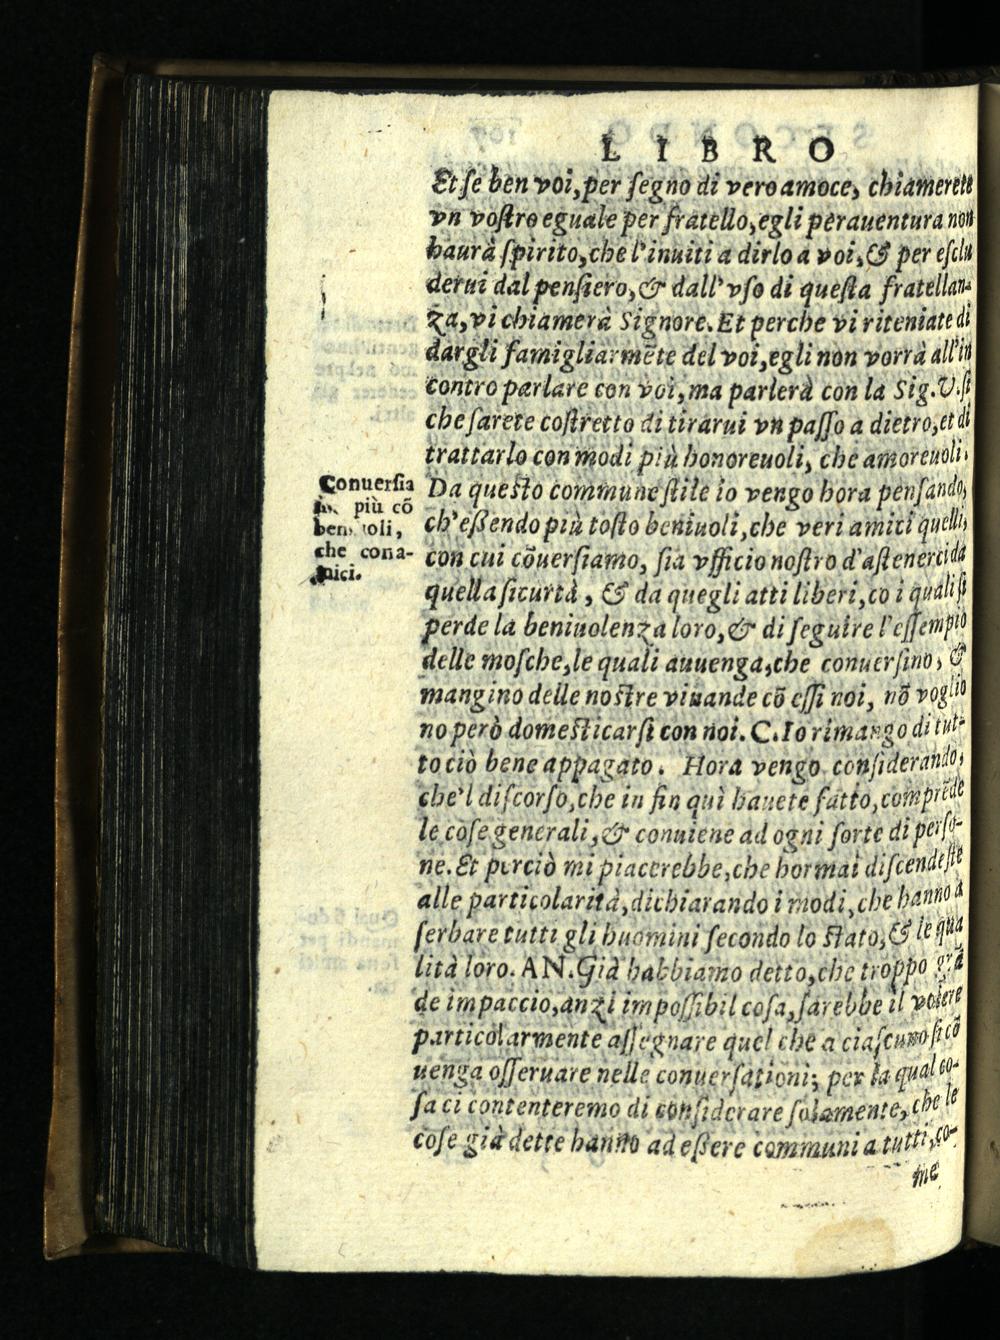 LIBRO
Et ſe ben voi, per ſegno di vero amoce, chiamerete
vn voſtro eguale per fratello, egli perauentura non
haurà ſpirito, che l'inuiti a dirlo a voi, & per eſclu
derui dal penſiero, & dall'vſo di queſta fratellan-
za, vi chiamerà Signore. Et perche vi riteniate di
dargli famigliarmēte del voi, egli non vorrà all'in
contro parlare con voi, ma parlerà con la Sig. V. ſi
che ſarete coſtretto di tirarui vn paſſo a dietro, et di
trattarlo con modi più honoreuoli, che amoreuoli.
Da queſto commune ſtile io vengo hora penſando,
ch'eßendo più toſto beniuoli, che veri amici quelli,
con cui cōuerſiamo, ſia vfficio noſtro d'aſtenerci da
quella ſicurtà, & da quegli atti liberi, co i quali ſi
perde la beniuolenza loro, & di ſeguire l'eſſempio
delle moſche, le quali auuenga, che conuerſino, &
mangino delle noſtre viuande cō eſſi noi, nō voglio
no però domeſticarſi con noi. C. Io rimango di tut-
to ciò bene appagato. Hora vengo conſiderando,
che'l diſcorſo, che in fin quì hauete fatto, comprēde
le coſe generali, & conuiene ad ogni ſorte di perſo-
ne. Et perciò mi piacerebbe, che hormai diſcendeſte
alle particolarità, dichiarando i modi, che hanno a
ſerbare tutti gli huomini ſecondo lo ſtato, & le qua
lità loro. AN. Già habbiamo detto, che troppo grā
de impaccio, anzi impoſſibil coſa, ſarebbe il volere
particolarmente aſſegnare quel che a ciaſcuno ſi cō
uenga oſſeruare nelle conuerſationi; per la qual co-
ſa ci contenteremo di conſiderare ſolamente, che le
coſe già dette hanno ad eßere communi a tutti, co-
me
Conuerſia
più cō
che con a-
mici.